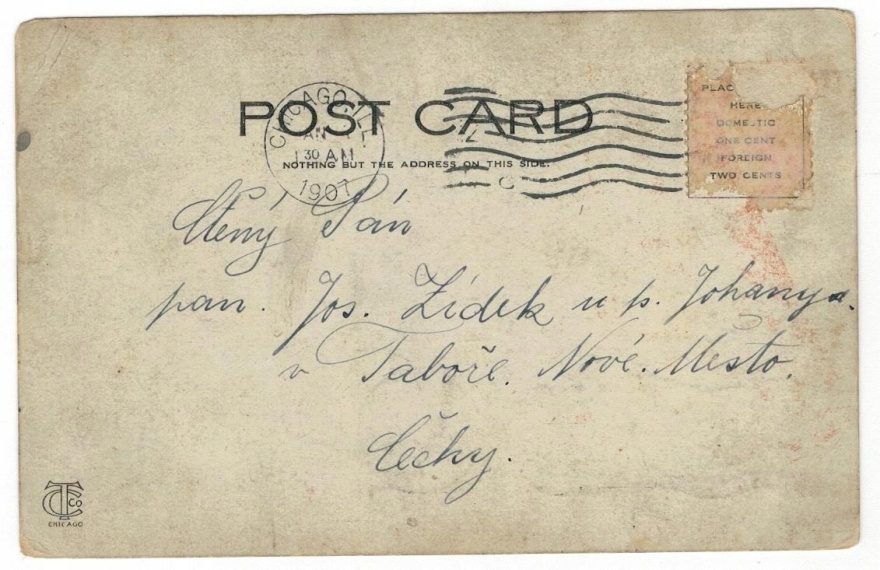 POST CARD
CHICAGO, ILL.
30 AM
1907
NOTHING BUT THE ADDRESS ON THIS SIDE.
PLAC
HERE
DOMESTIC
ONE CENT
FOREIGN
TWO CENTS
Ctěný Pán
pan. Jos. Zídek u p. Johany
v Taboře. Nové. Mesto.
Čechy.
TC CO
CHICAGO